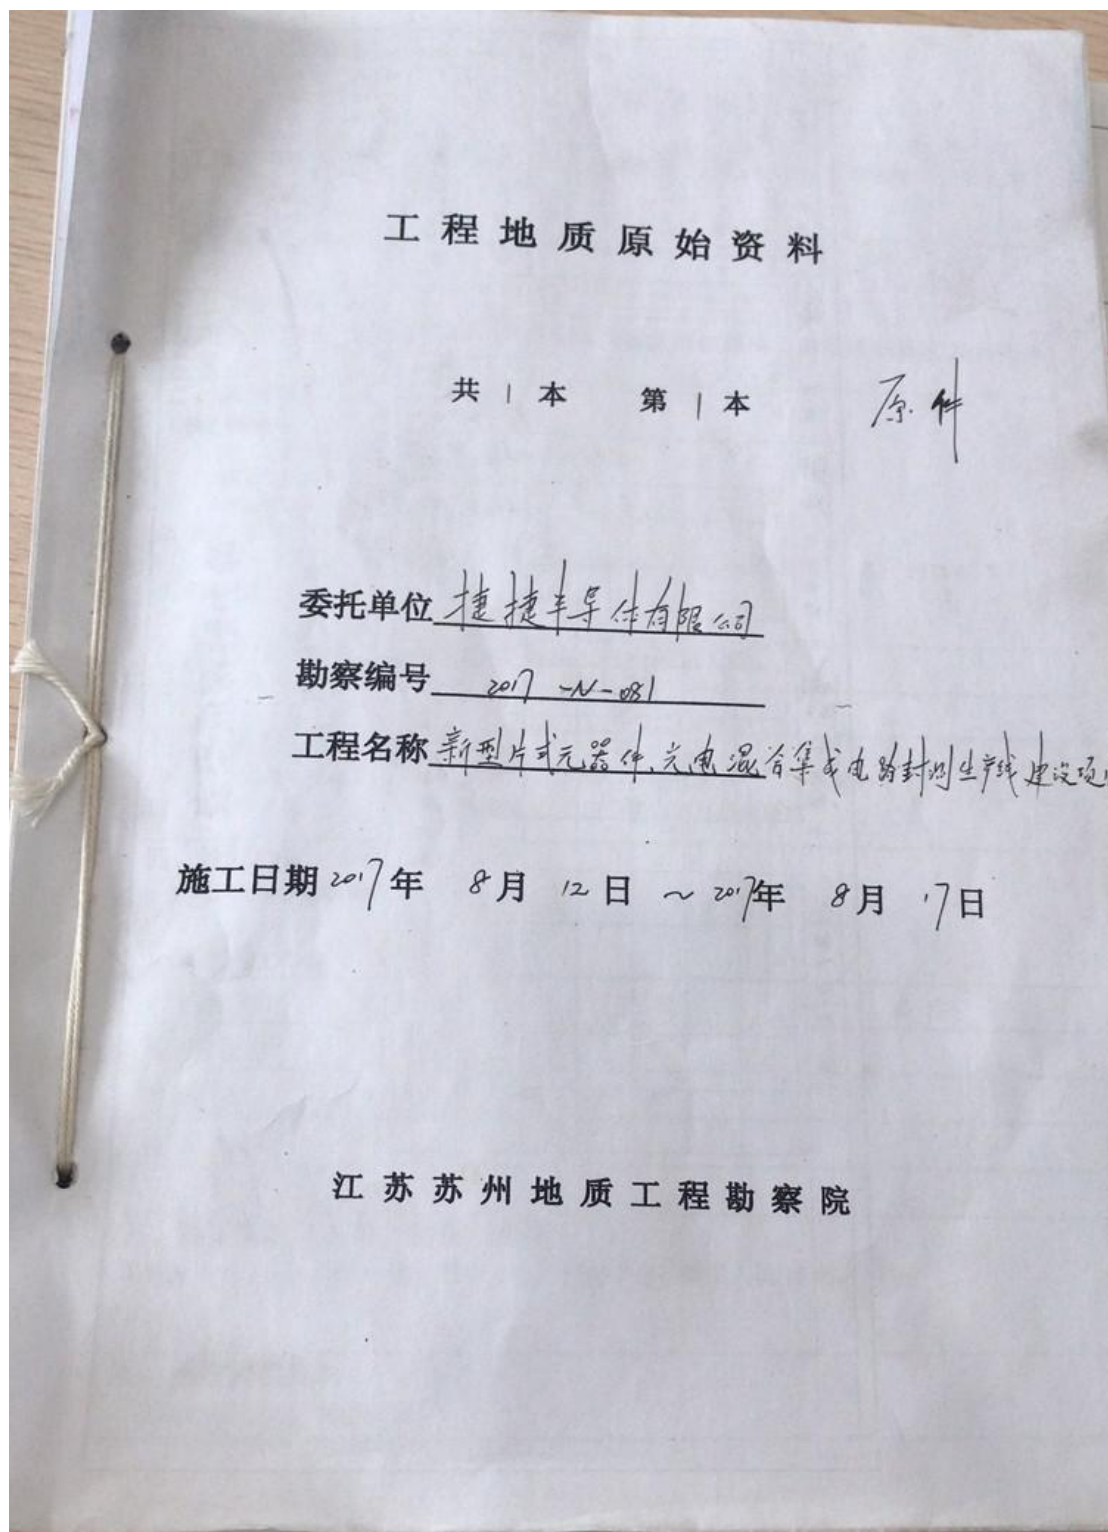 工程地质原始资料
共1本 第1本 原件
委托单位 捷捷半导体有限公司
勘察编号 2017-N-081
工程名称 新型片式元器件、光电混合集成电路封测生产线建设项
施工日期 2017年 8月 12日 ~ 2017年 8月 17日
江苏苏州地质工程勘察院